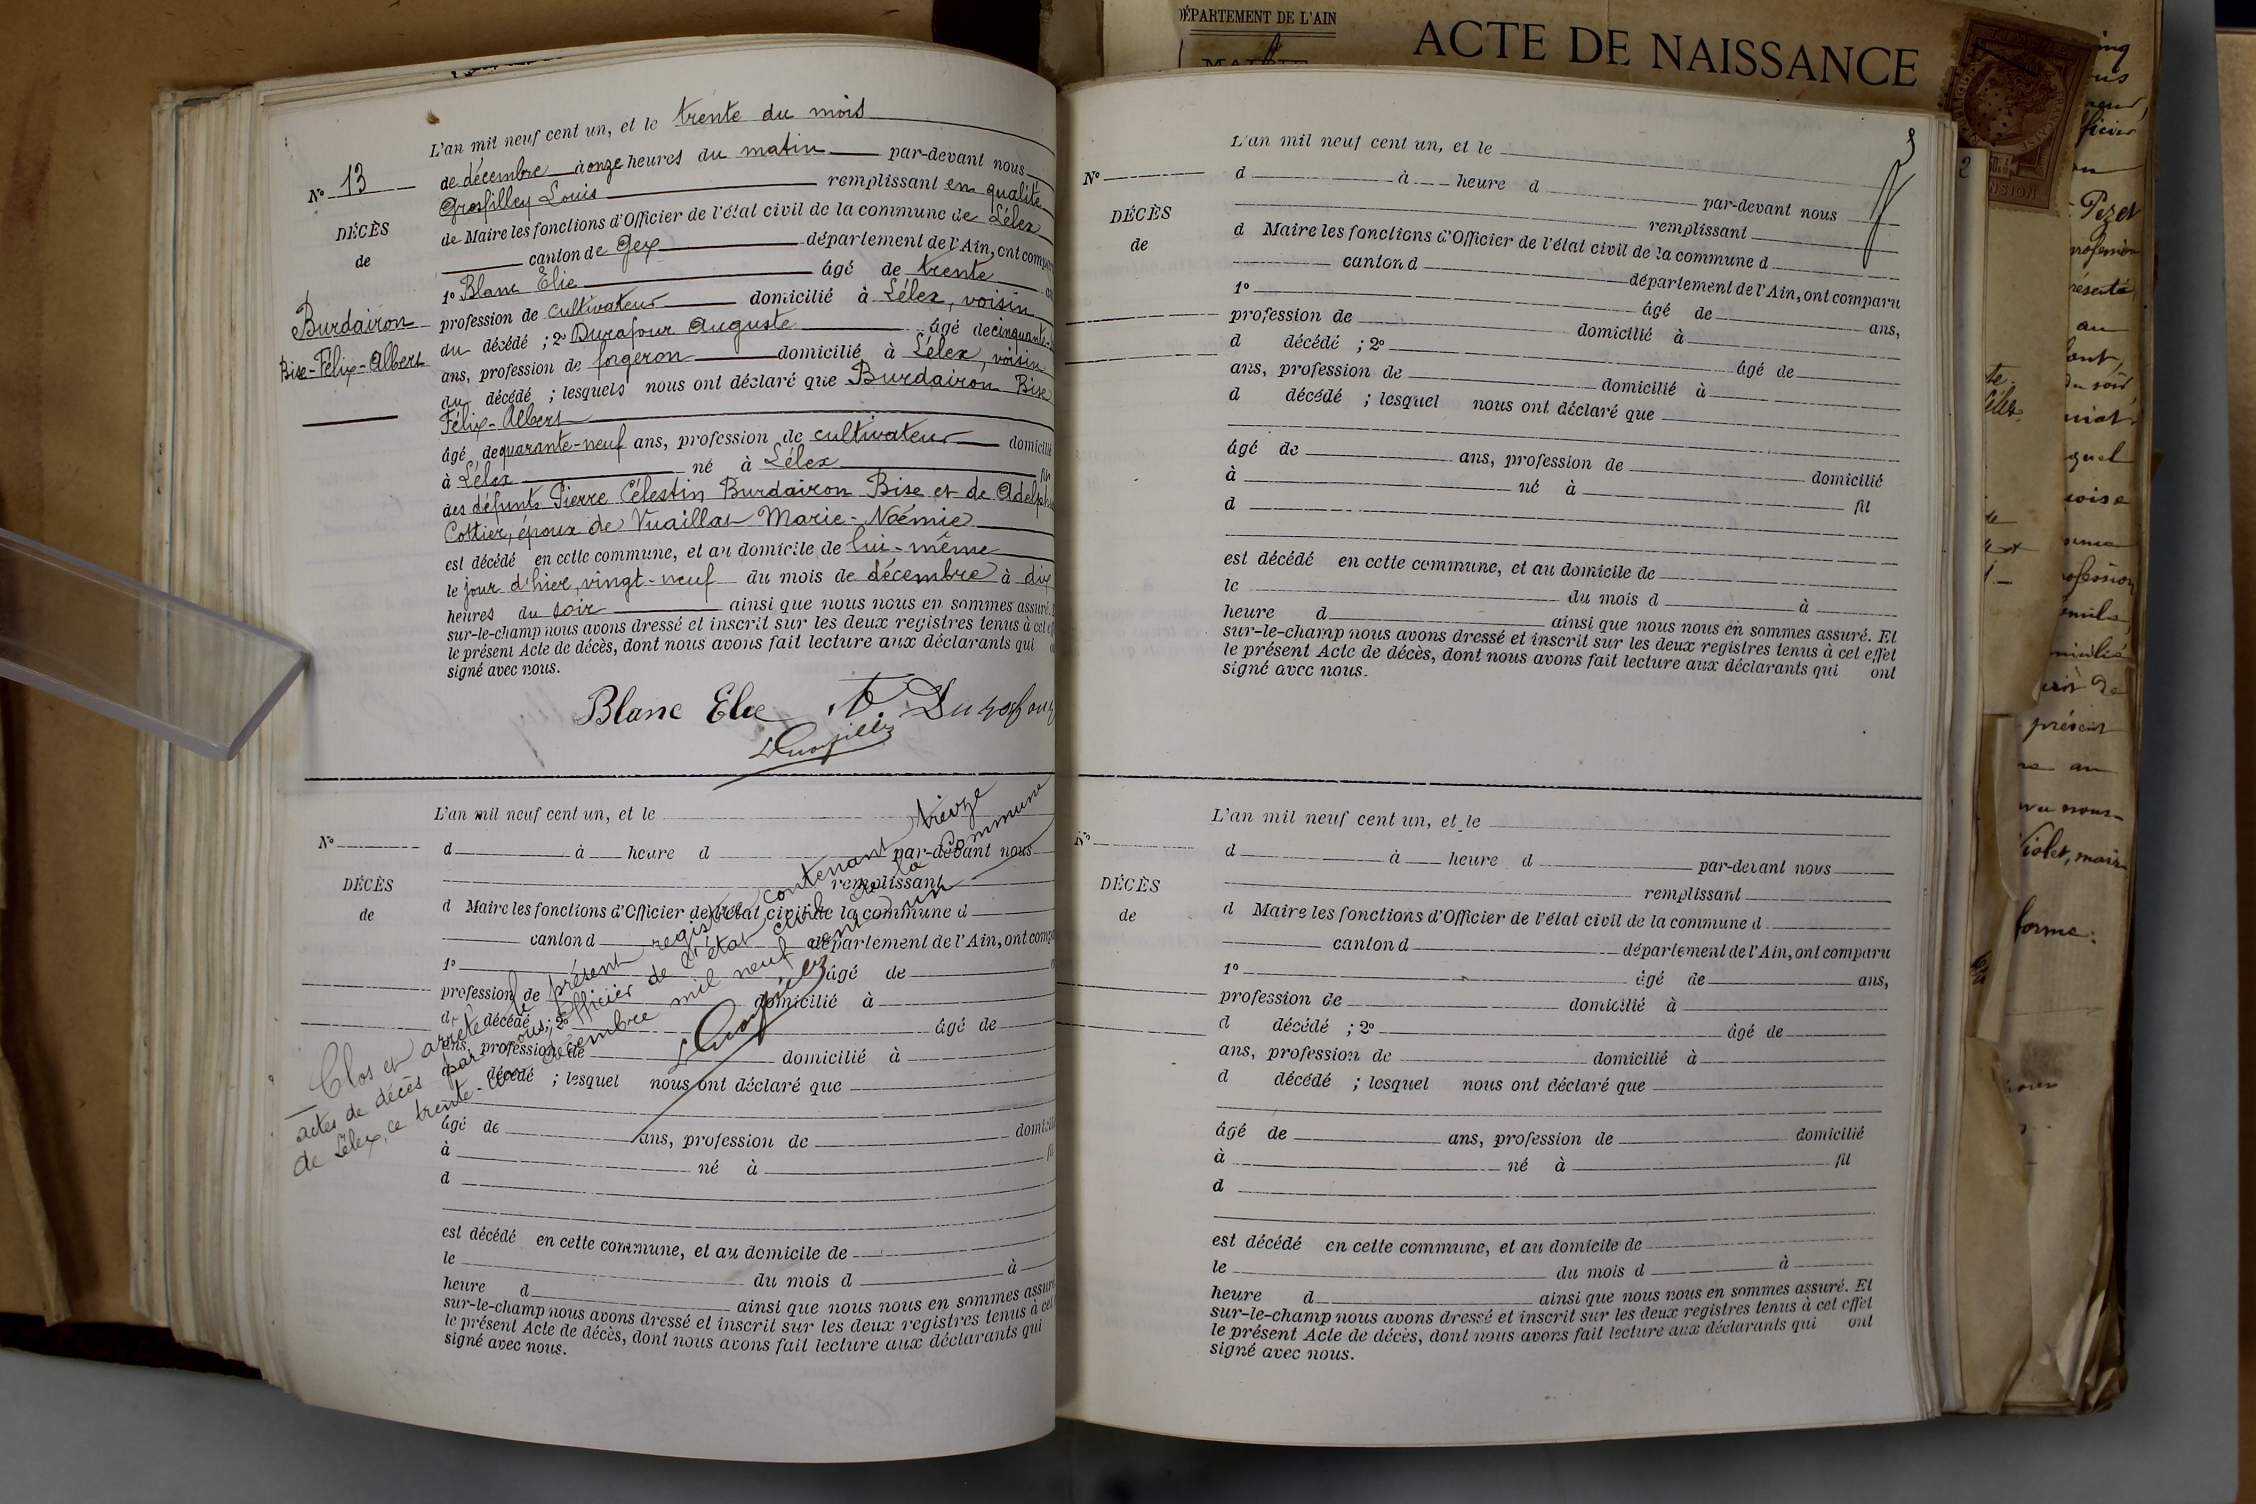 N° 13
DÉCÈS
de
Burdairon
Bise-Félix-Albert
L'an mil neuf cent un, et le trente du mois
de décembre à onze heures du matin par-devant nous
Grosfilley Louis remplissant en qualité
de Maire les fonctions d'Officier de l'état civil de la commune de Lélex
canton de Gex département de l'Ain, ont comparu
1° Blanc Elie âgé de trente
profession de cultivateur domicilié à Lélex, voisin
du décédé ; 2° Durafour Auguste âgé de cinquante-
ans, profession de forgeron domicilié à Lélex, voisin
du décédé ; lesquels nous ont déclaré que Burdairon Bise
Félix-Albert
âgé de quarante-neuf ans, profession de cultivateur domicilié
à Lélex né à Lélex fils
des défunts Pierre Célestin Burdairon Bise et de Adelphe
Cottier, époux de Vuaillat Marie-Noémie
est décédé en cette commune, et au domicile de lui-même
le jour d'hier, vingt-neuf du mois de décembre à dix
heures du soir ainsi que nous nous en sommes assuré.
sur-le-champ nous avons dressé et inscrit sur les deux registres tenus à cet
le présent Acte de décès, dont nous avons fait lecture aux déclarants qui
signé avec nous.
Blanc Elie A. Durafour
L Grosfilley
N°
DÉCÈS
de
L'an mil neuf cent un, et le
d à heure d par-devant nous
remplissant
d Maire les fonctions d'Officier de l'état civil de la commune d
canton d département de l'Ain, ont comparu
1° âgé de
profession de domicilié à
d décédé ; 2° âgé de
ans, profession de domicilié à
d décédé ; lesquel nous ont déclaré que
âgé de ans, profession de domicilié
à né à fil
d
est décédé en cette commune, et au domicile de
le du mois d à
heure d ainsi que nous nous en sommes assuré
sur-le-champ nous avons dressé et inscrit sur les deux registres tenus à cet
le présent Acte de décès, dont nous avons fait lecture aux déclarants qui
signé avec nous.
Clos et arrêté le présent registre contenant treize
actes de décès par nous, Officier de l'état civil de la commune
de Lélex, ce trente-un décembre mil neuf cent un
L Grosfilley
DÉPARTEMENT DE L'AIN
MAIRIE
ACTE DE NAISSANCE
N°
DÉCÈS
de
L'an mil neuf cent un, et le
d à heure d par-devant nous
remplissant
d Maire les fonctions d'Officier de l'état civil de la commune d
canton d département de l'Ain, ont comparu
1° âgé de ans,
profession de domicilié à
d décédé ; 2° âgé de
ans, profession de domicilié à
d décédé ; lesquel nous ont déclaré que
âgé de ans, profession de domicilié
à né à
d fil
est décédé en cette commune, et au domicile de
le du mois d à
heure d ainsi que nous nous en sommes assuré. Et
sur-le-champ nous avons dressé et inscrit sur les deux registres tenus à cet effet
le présent Acte de décès, dont nous avons fait lecture aux déclarants qui ont
signé avec nous.
N°
DÉCÈS
de
L'an mil neuf cent un, et le
d à heure d par-devant nous
remplissant
d Maire les fonctions d'Officier de l'état civil de la commune d
canton d département de l'Ain, ont comparu
1° âgé de ans,
profession de domicilié à
d décédé ; 2° âgé de
ans, profession de domicilié à
d décédé ; lesquel nous ont déclaré que
âgé de ans, profession de domicilié
à né à fil
d
est décédé en cette commune, et au domicile de
le du mois d à
heure d ainsi que nous nous en sommes assuré. Et
sur-le-champ nous avons dressé et inscrit sur les deux registres tenus à cet effet
le présent Acte de décès, dont nous avons fait lecture aux déclarants qui ont
signé avec nous.
Pezet
au
présent
Violet, maire
forme: